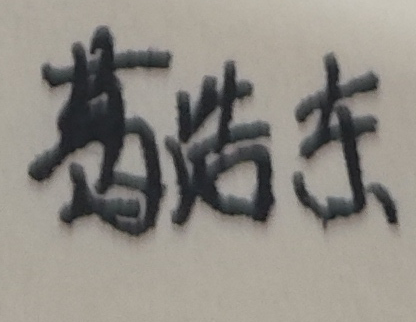 葛浩东